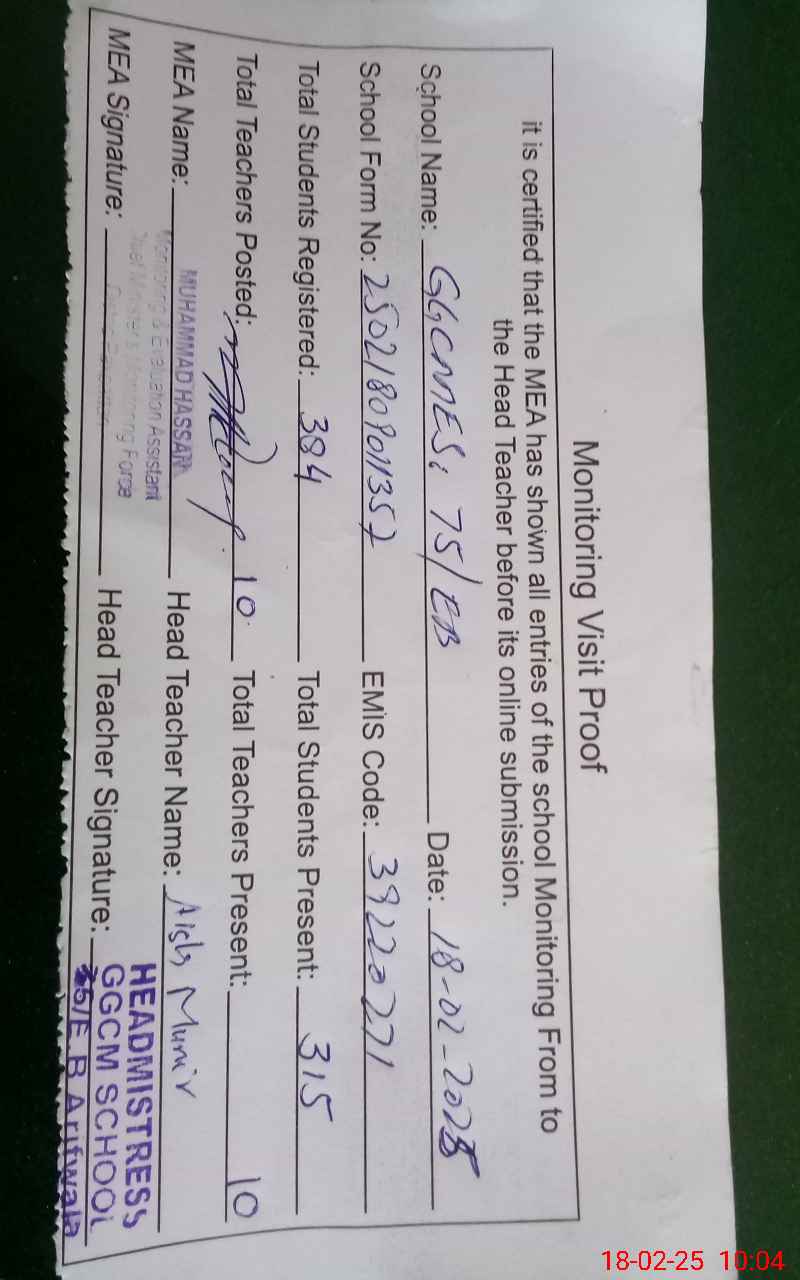 Monitoring Visit Proof
it is certified that the MEA has shown all entries of the school Monitoring From to
the Head Teacher before its online submission.
School Name: GGCMES; 75/EB Date: 18-02-2025
School Form No: 25021809011357 EMIS Code: 39220271
Total Students Registered: 384 Total Students Present: 315
Total Teachers Posted: 10 Total Teachers Present: 10
MEA Name: MUHAMMAD HASSAN Head Teacher Name: Munir
Monitoring & Evaluation Assistant
Chief Minister's Monitoring Force
MEA Signature: Head Teacher Signature:
HEADMISTRESS
GGCM SCHOOL
75/E.B Arifwala
18-02-25 10:04